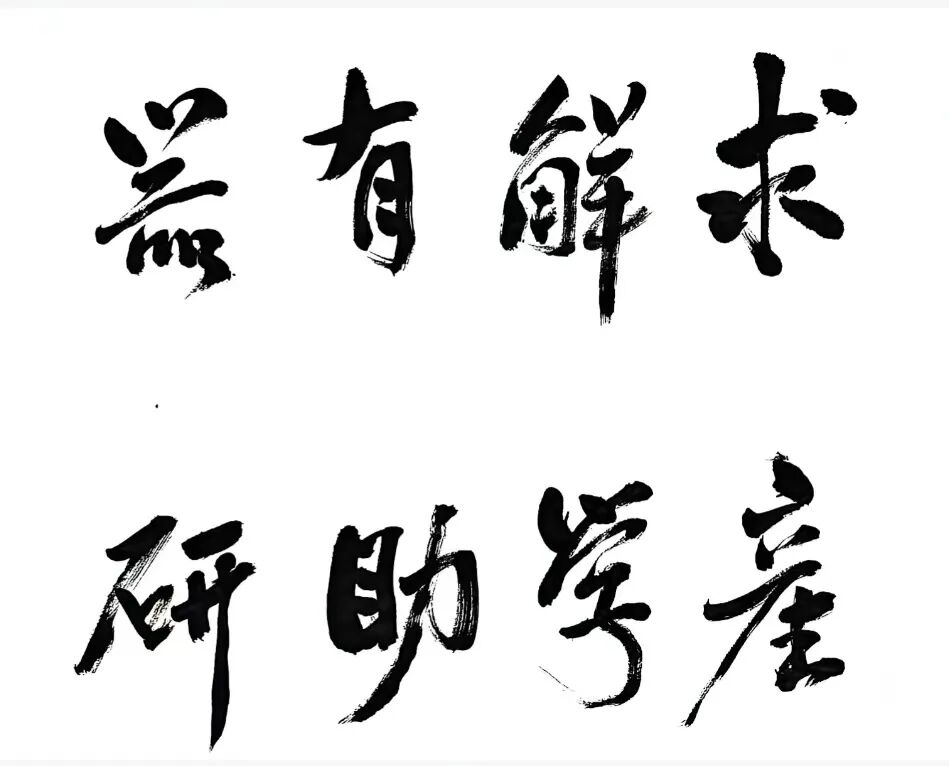 求解有器
產学助研